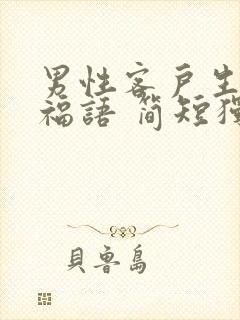 男性客戶生
福語 簡短獨
貝魯島